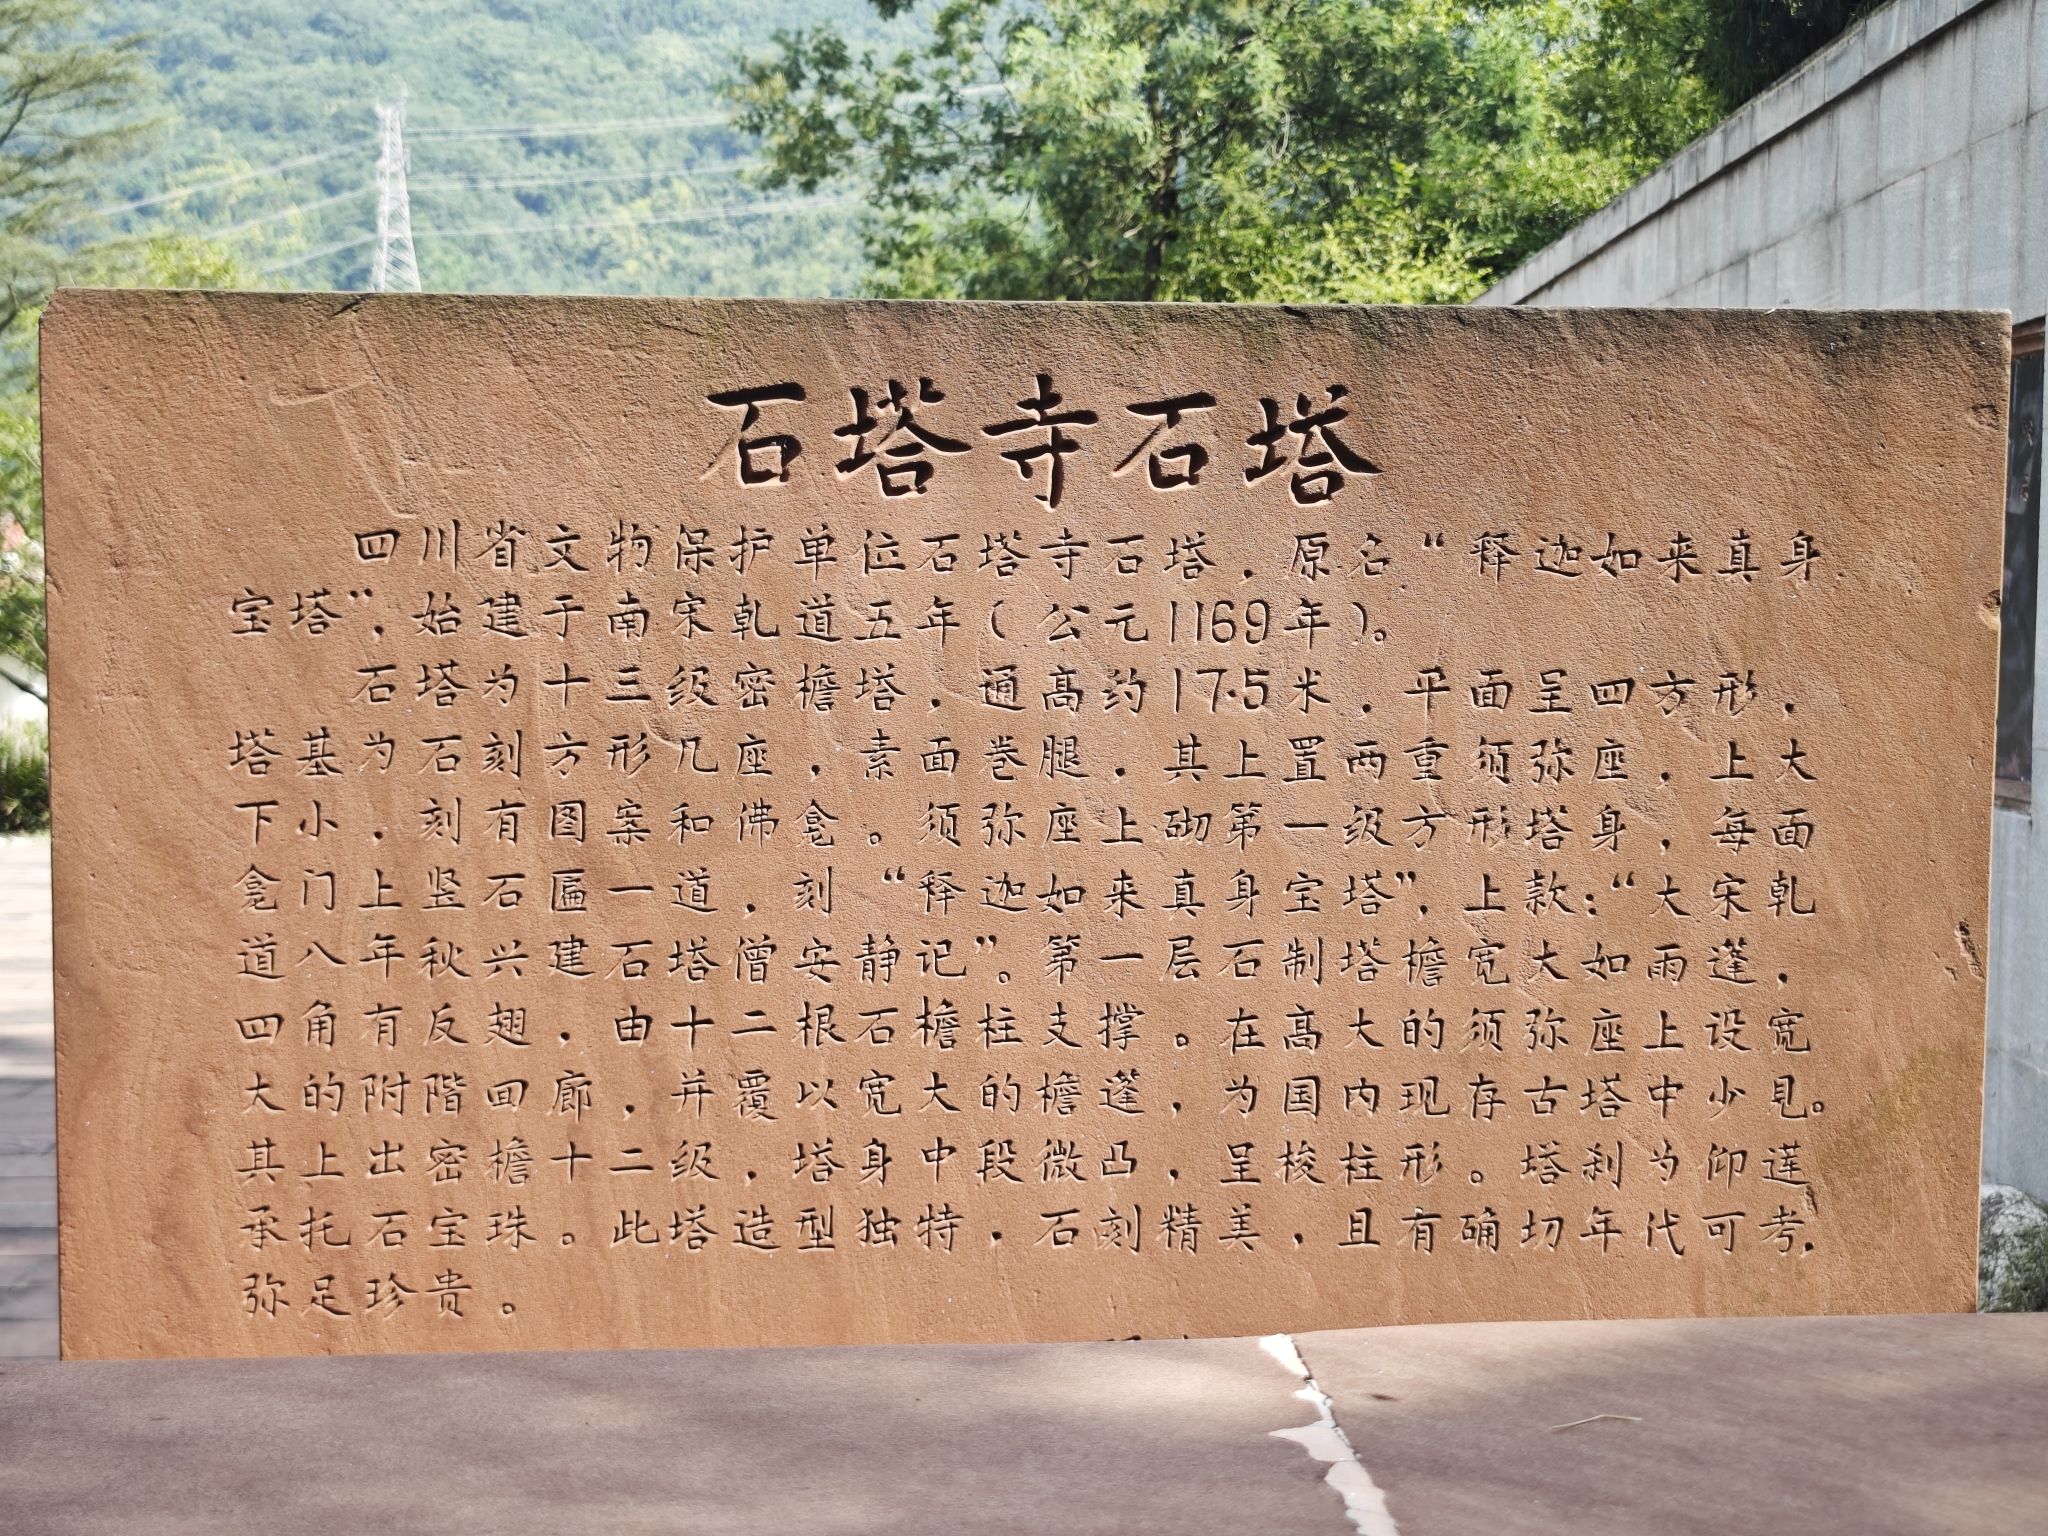 石塔寺石塔
四川省文物保护单位石塔寺石塔，原名“释迦如来真身
宝塔”，始建于南宋乾道五年（公元1169年）。
石塔为十三级密檐塔，通高约17.5米，平面呈四方形，
塔基为石刻方形几座，素面卷腿，其上置两重须弥座，上大
下小，刻有图案和佛龛。须弥座上砌第一级方形塔身，每面
龛门上竖石匾一道，刻“释迦如来真身宝塔”，上款：“大宋乾
道八年秋兴建石塔僧安静记”。第一层石制塔檐宽大如雨蓬，
四角有反翅，由十二根石檐柱支撑。在高大的须弥座上设宽
大的附階回廊，并覆以宽大的檐蓬，为国内现存古塔中少见。
其上出密檐十二级，塔身中段微凸，呈梭柱形。塔刹为仰莲
承托石宝珠。此塔造型独特，石刻精美，且有确切年代可考，
弥足珍贵。